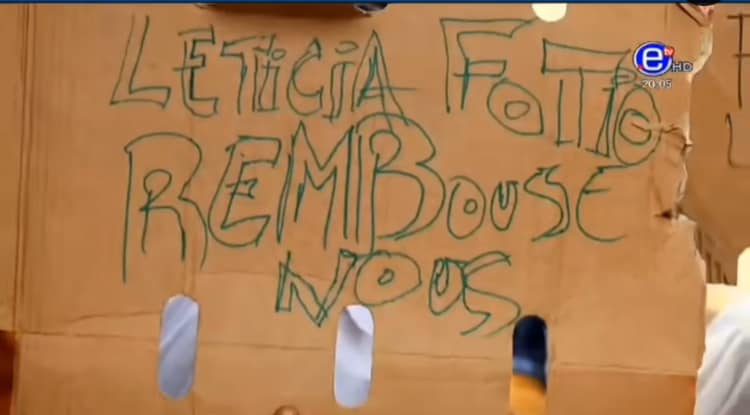 LETICIA FOTIO
REMBOUSE
NOUS
e tv HD
20:05